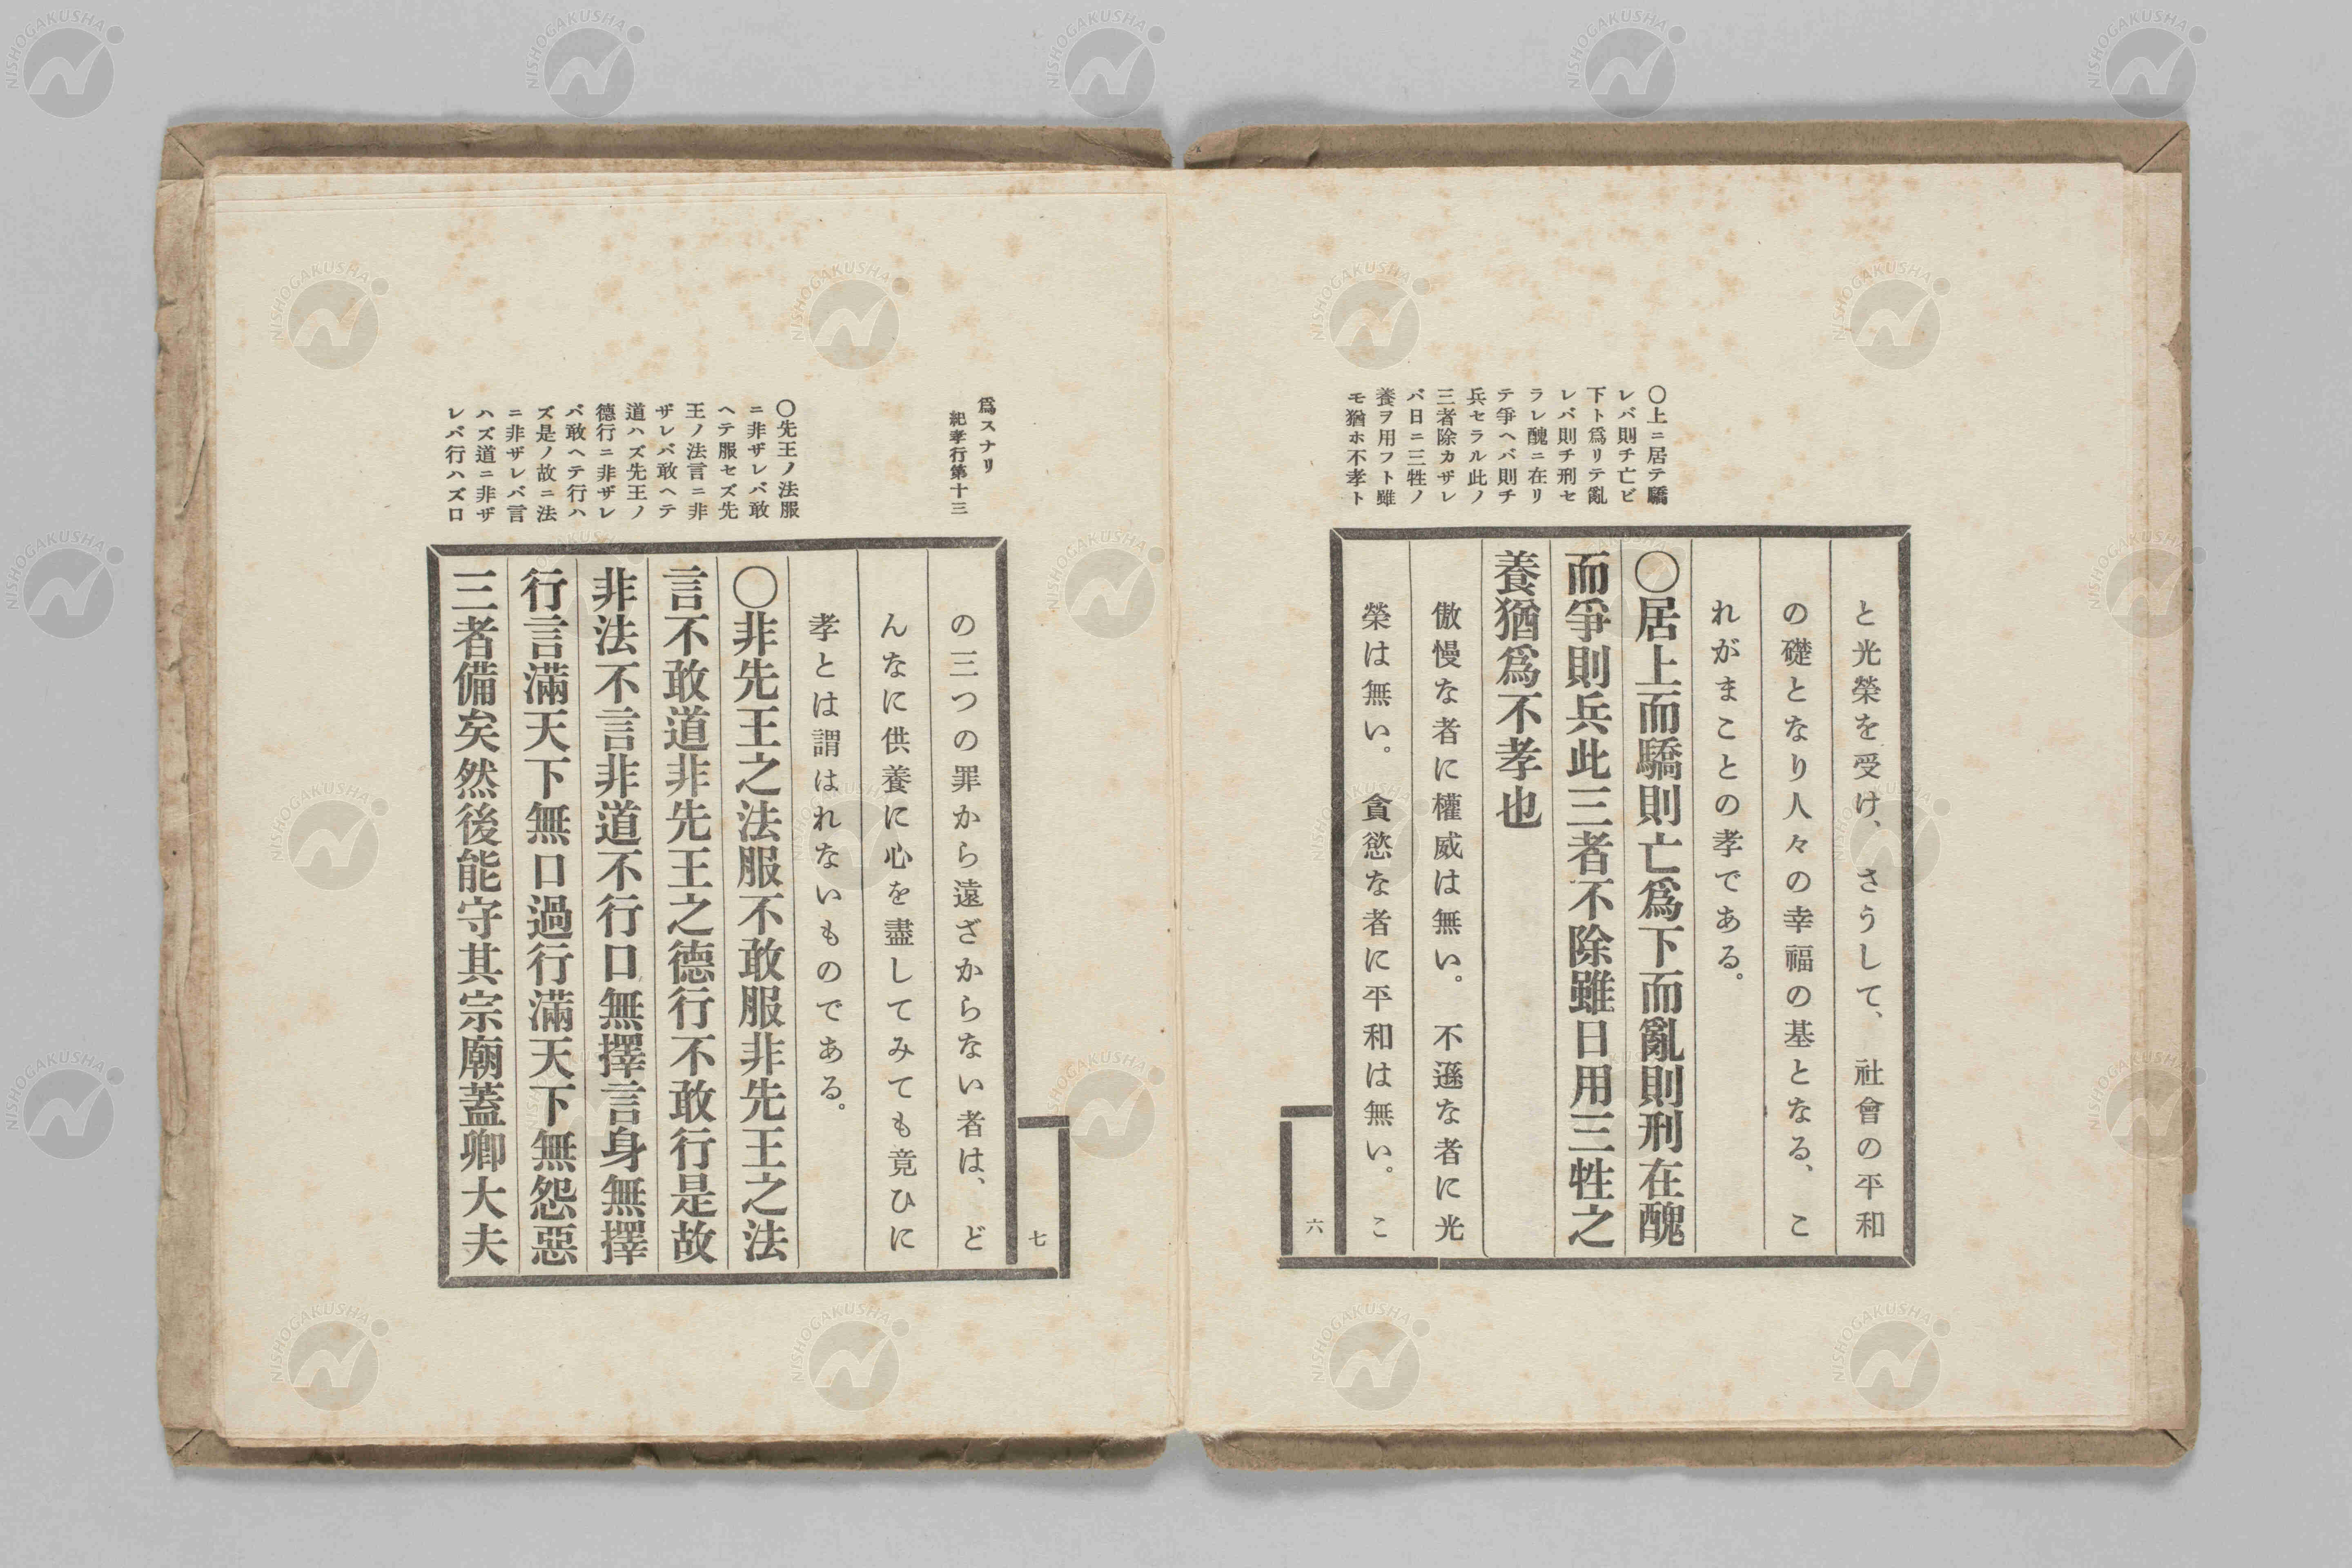 〇上ニ居テ驕
レバ則チ亡ビ
下ト爲リテ亂
レバ則チ刑セ
ラレ醜ニ在リ
テ爭ヘバ則チ
兵セラル此ノ
三者除カザレ
バ日ニ三牲ノ
養ヲ用フト雖
モ猶ホ不孝ト
と光榮を受け、さうして、社會の平和
の礎となり人々の幸福の基となる、こ
れがまことの孝である。
〇居上而驕則亡爲下而亂則刑在醜
而爭則兵此三者不除雖日用三牲之
養猶爲不孝也
傲慢な者に權威は無い。不遜な者に光
榮は無い。貪慾な者に平和は無い。こ
六
爲スナリ
紀孝行第十三
〇先王ノ法服
ニ非ザレバ敢
ヘテ服セズ先
王ノ法言ニ非
ザレバ敢ヘテ
道ハズ先王ノ
德行ニ非ザレ
バ敢ヘテ行ハ
ズ是ノ故ニ法
ニ非ザレバ言
ハズ道ニ非ザ
レバ行ハズ口
の三つの罪から遠ざからない者は、ど
んなに供養に心を盡してみても竟ひに
孝とは謂はれないものである。
〇非先王之法服不敢服非先王之法
言不敢道非先王之德行不敢行是故
非法不言非道不行口無擇言身無擇
行言滿天下無口過行滿天下無怨惡
三者備矣然後能守其宗廟蓋卿大夫
七
NISHOGAKUSHA